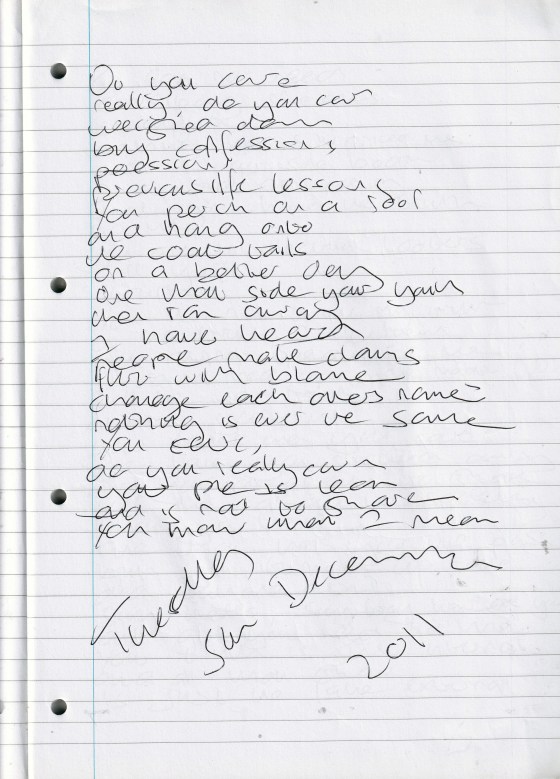 Do you care
really, do you care
weighed down
by confessions
possessions
previous life lessons
You perch on a stool
and hang onto
the coat tails
on a better day
One that stole your
then ran away
I have heard
people make claims
flirt with blame
change each others names
nothing is ever the same
You
do you really care
your pie is lean
and is not to share
You know what I mean
Tuesday
December
2011